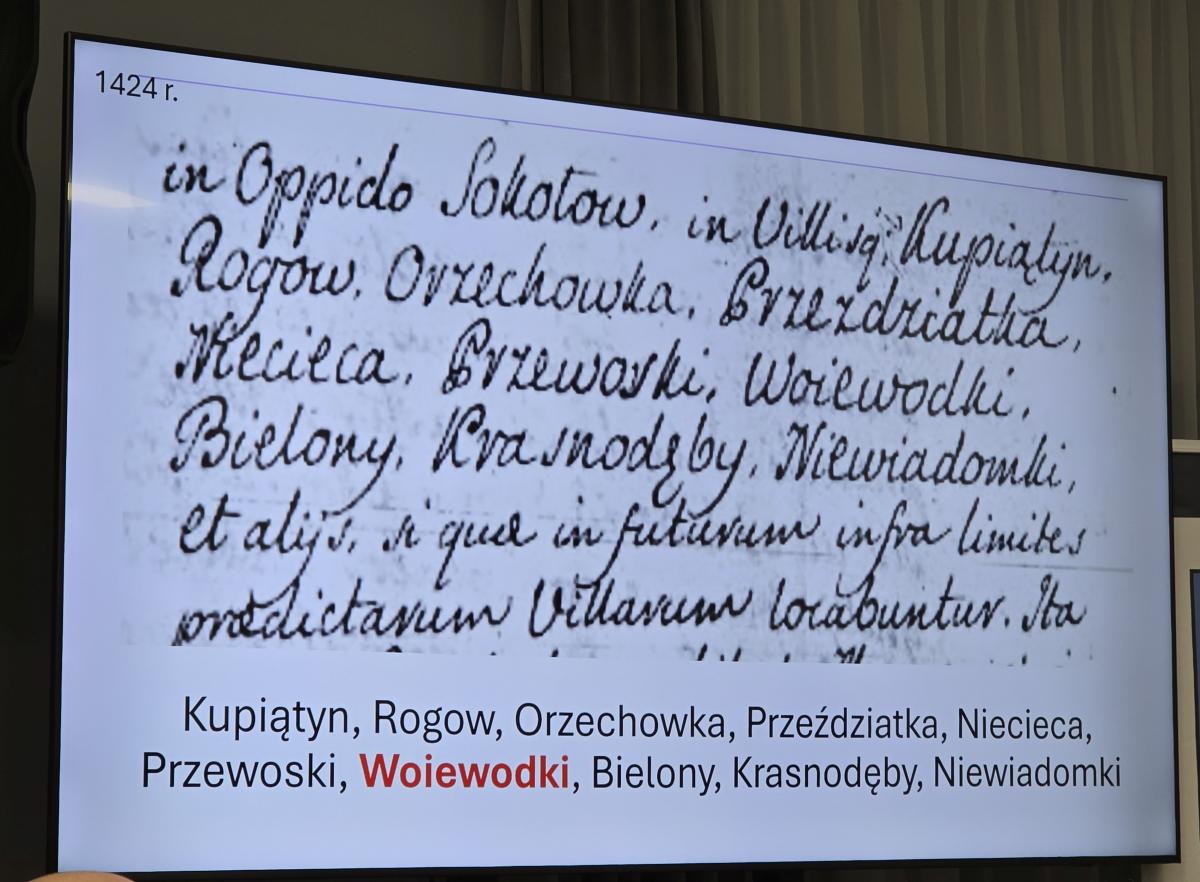 1424 r.
in Oppido Sokołow, in Villisq; Kupiątyn,
Rogow, Orzechowka, Przezdziatka,
Niecieca, Przewoski, Woiewodki,
Bielony, Krasnodęby, Niewiadomki,
et alijs, si quæ in futurum infra limites
prædictarum Villarum locabuntur. Ita
Kupiątyn, Rogow, Orzechowka, Przeździatka, Niecieca,
Przewoski, Woiewodki, Bielony, Krasnodęby, Niewiadomki